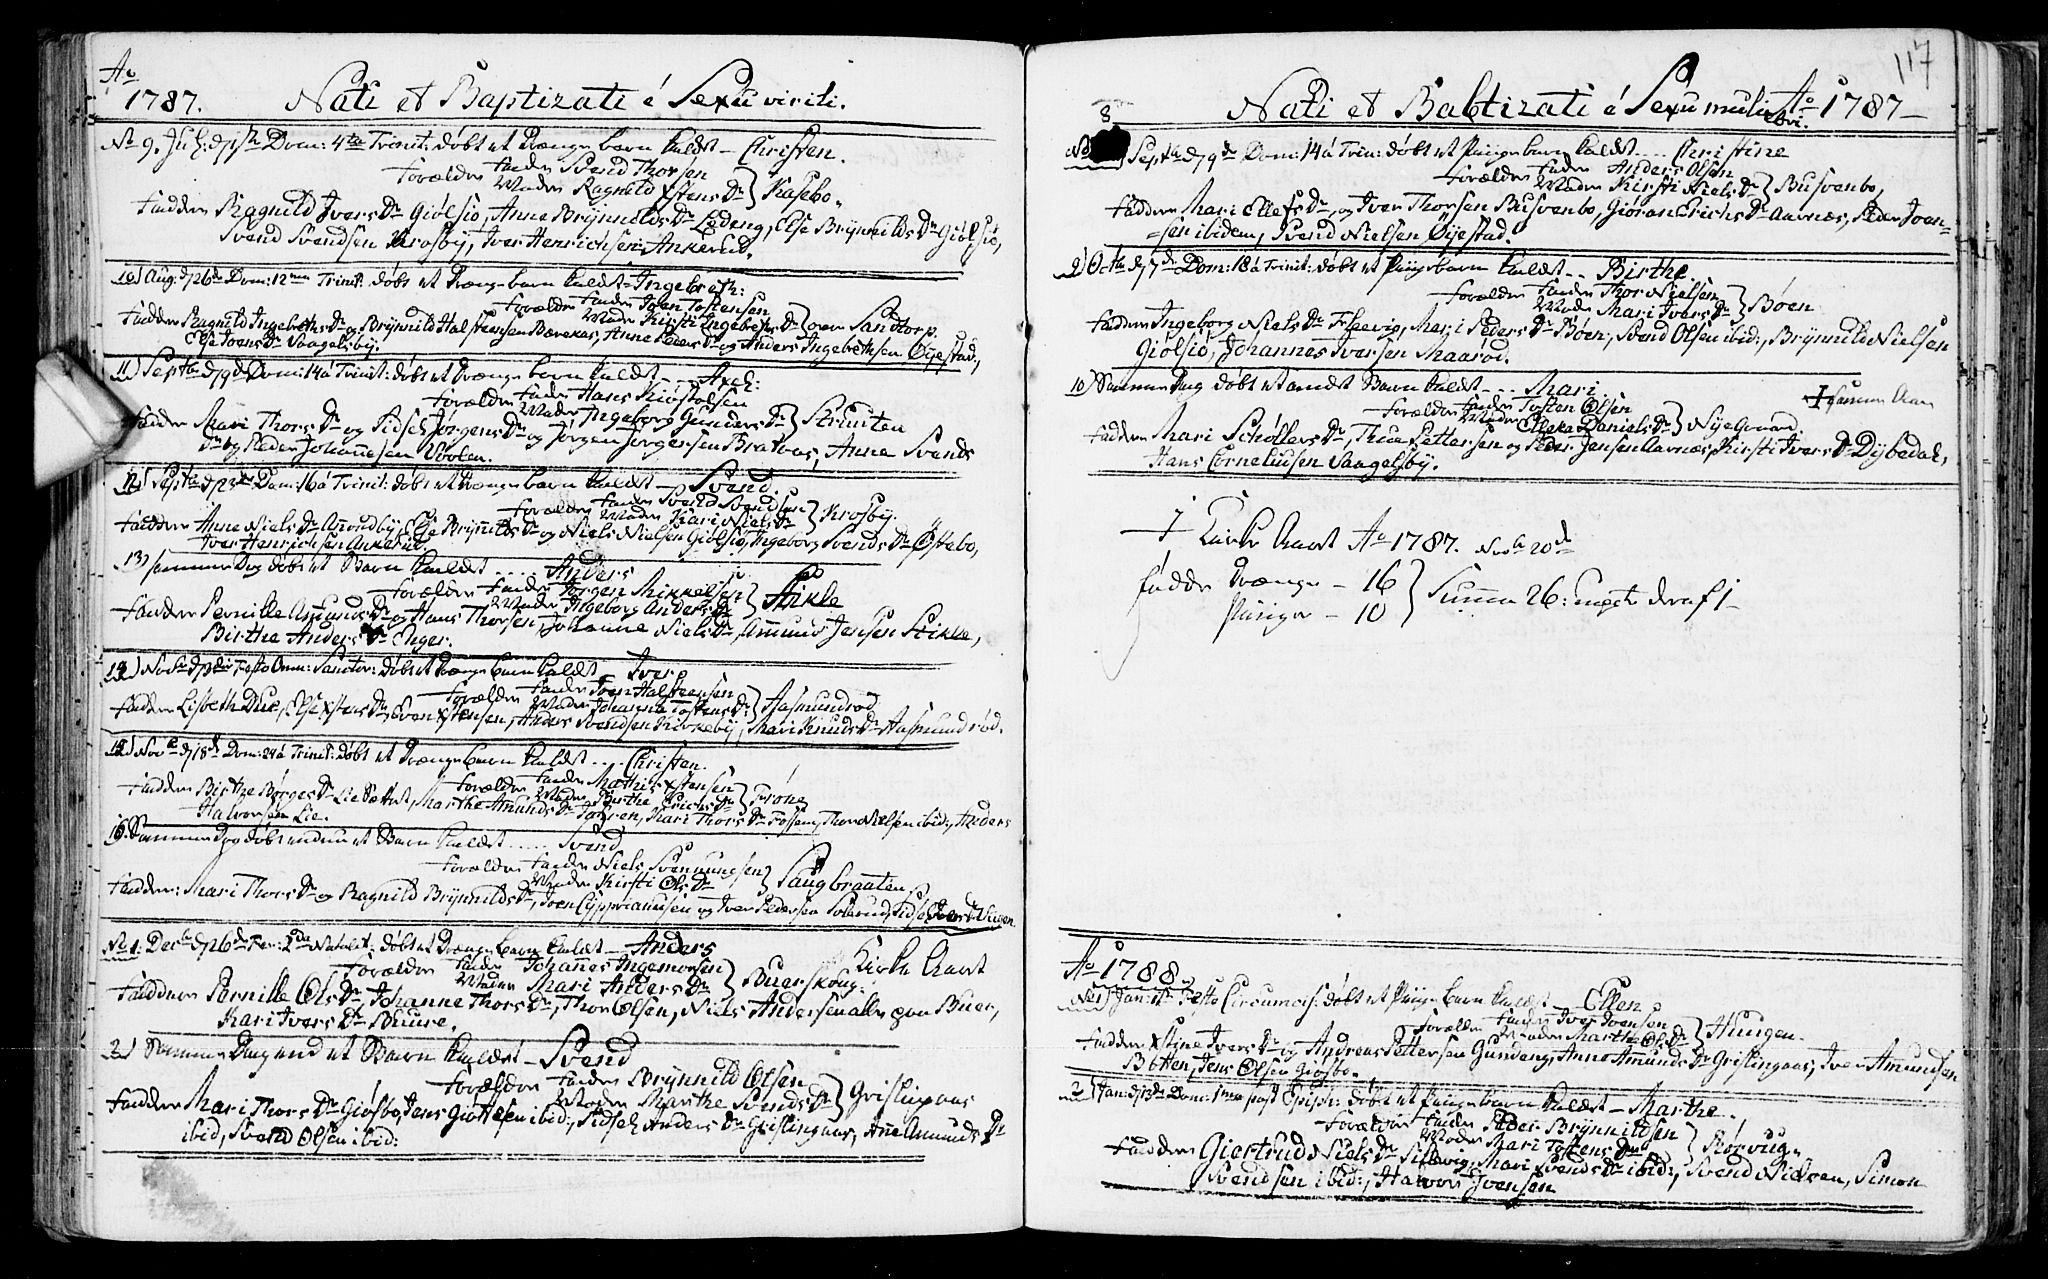 Ao
1787. Nati et Baptizati é Sexu virili.
No 9. Jul: d. 1ste Dom: 4ta Trinit: döbt et Drænge barn kaldet – Christen.
Forældre Fader Svend Thorsen
Moder Ragnild Xstens Dr } Kasebo.
Faddere Ragnild Ivers Dr Giölsiö, Anne Brÿnnilds Dr Lodeng, Else Brÿnnilds Dr Giölsiö,
Svend Svendsen Krosbÿ, Iver Henrichsen Ankerud.
10) Aug: d. 26de Dom: 12 Trinit: döbt et Drænge barn kaldet – Ingebreth:
Forældre Fader Joen Tostensen
Moder Kirsti Ingebreths Dr } Sandtorp.
Faddere Ragnild Ingebreths Dr og Brÿnnild Halstensen Bærekas, Anne Peders Dr og Anders Ingebrethsen Öÿestad,
Else Joens Dr Vaagelsbÿ.
11) Septbr d. 9de Dom: 14 á Trinit: döbt et Drænge barn kaldet – Axel:
Forældre Fader Hans Kiöstolsen
Moder Ingeborg Gunders Dr } Struiten
Faddere Mari Thors Dr og Sidsel Jörgens Dr og Jörgen Jörgensen Brataas, Anne Svends
Dr og Peder Johannesen
12) Septbr d. 23de Dom: 16 á Trinit: döbt et Drænge barn kaldet – Svend
Forældre Fader Svend Svendsen
Moder Kari Niels Dr } Krosbÿ.
Faddere Anne Niels Dr Amondbÿ, Else Brÿnnilds Dr og Niels Nielsen Giölsiö, Ingeborg Svends Dr Östebo,
Iver Henrichsen Ankerud
13) samme Dag döbt et Barn kaldet .... Anders
Forældre Fader Jörgen Mikkelsen
Moder Ingeborg Anders Dr } Stikle
Faddere Pernille Amunds Dr og Hans Thorsen, Johanne Niels Dr, Amund Jensen Stikle,
Birthe Anders Dr Enger.
14) Nov d. Festo Omn: Sanctor: döbt et Drænge barn kaldet – Iver
Forældre Fader Joen Halstensen
Moder Johanna Tostens Dr } Aasmundröd
Faddere Lisbeth Due, Else Xstens Dr, Even Xstensen, Anders Svendsen Kirkebÿ, Mari Knuds Dr Aasmundröd.
15) Novbr d. 18de Dom: 24 á Trinit: döbt et Drænge barn kaldet .... Christen.
Forældre Fader Mathis Xstensen
Moder Birthe Erichs Dr } Fröne
Faddere Birthe Börges Dr Lie Sættet, Marthe Amunds Dr, Kari Thors Dr Fossem, Thor Nielsen ibid:, Anders
Halvorsen Lie.
16. Samme Dag döbt endnu et Barn kaldet ..... Svend
Forældre Fader Niels Svenningsen
Moder Kirsti Ols Dr } Saugbraaten
Faddere: Mari Thors Dr og Ragnild Brÿnnilds Dr, Joen Cÿpprianusen og Iver Pedersen Solerud, Sidsel
No 1. Decbr d. 26de Fer: 2da Nativit: döbt et Drænge barn kaldet – Anders
Kirke Aaret
Forældre Fader Johannes Ingemorsen
Moder Mari Anders Dr } Buerskoug.
Faddere Pernille Ols Dr, Johanne Thors Dr, Thor Olsen, Niels Andersen alle paa Buer,
Kari Ivers Dr Buure.
2) Samme Dag end et Barn kaldet – Svend
Forældre Fader Brÿnnild Olsen
Moder Marthe Svends Dr } Grislingaas
Faddere Mari Thors Dr Giösbo, Jens ibid:, Sidsel Anders Dr Grislingaas, Anne Amunds Dr
ibid, Svend Olsen ibid:
117
Nati et Babtizati á Sexu muliebri. Ao 1787 –
8
No Septbr d. 9de Dom: 14 á Trin: döbt et Pige barn kaldet .... Christine
Forældre Fader Anders Olsen
Moder Kirsti Niels Dr } Busvenbo,
Faddere Mari Ellefs Dr, og Iver Thorsen Busvenbo, Giöran Erichs Dr Aarnæs, Peder Joen-
sen ibidem, Svend Nielsen Öÿestad.
9) Octbr d. 7de Dom: 18 á Trinit: döbt et Pigebarn kaldet .. Birthe.
Forældre Fader Thor Nielsen
Moder Mari Ivers Dr } Böen
Faddere Ingeborg Niels Dr, Mari Peders Dr Böen, Svend Olsen ibid:, Brÿnnild Nielsen
Giölsiö, Johannes Iversen Maaröd.
10) Samme Dag döbt et andet Barn kaldet .... Mari
samme Aar
Forældre Fader Tosten Olsen
Moder Daniels Dr } Nÿegaard.
Faddere Mari Schöllers Dr, Thue Pettersen og Peder Jensen Aarnæs, Kirsti Ivers Dr Dÿbedal,
Hans Corneliusen Vaagelsbÿ.
I Kirke Aaret Ao 1787. 20de
födde Drænge – 16
Piiger – 10 } Summa 26: deraf 1 –
Ao 1788
No 1) Jan: 1ste Festo Circumcis: döbt et Pige barn kaldet – Ellen
Forældre Fader Iver Ivensen
Moder Marthe Ols Dr } Haugen.
Faddere Xstine Ivers Dr og Andreas Pettersen Gundeng, Anne Amunds Dr Grislingaas, Iver Amundsen
Botten, Jens Olsen Giösbo.
2) Jan: d. 13de Dom: 1ma post Epiph: döbt et Pige barn kaldet – Marthe.
Forældre Fader Peder Brÿnnildsen
Moder Mari Tostens Dr } Rörvug.
Faddere Giertrud Niels Dr, Mari Svends Dr ibid:, Svend Nielsen, Simon
Svendsen ibid:, Halvor Ivensen